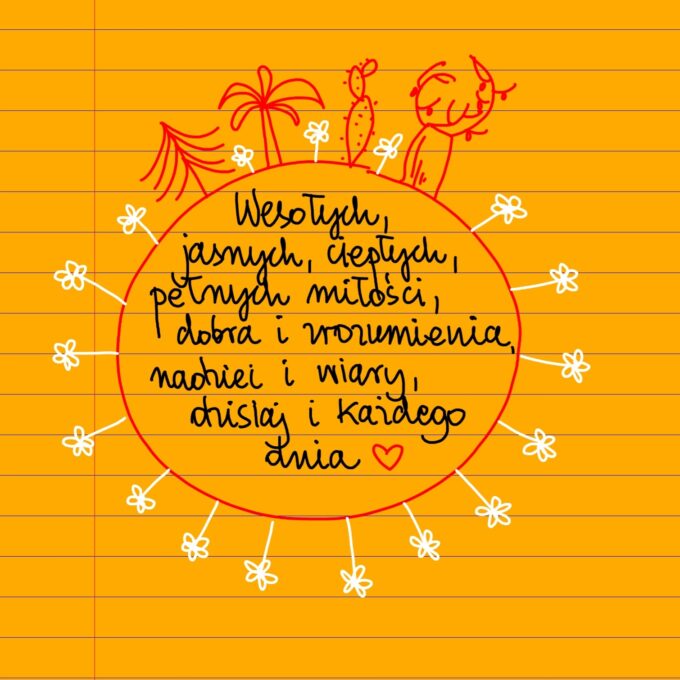 Wesołych,
jasnych, ciepłych,
pełnych miłości,
dobra i zrozumienia,
nadziei i wiary,
dzisiaj i każdego
dnia